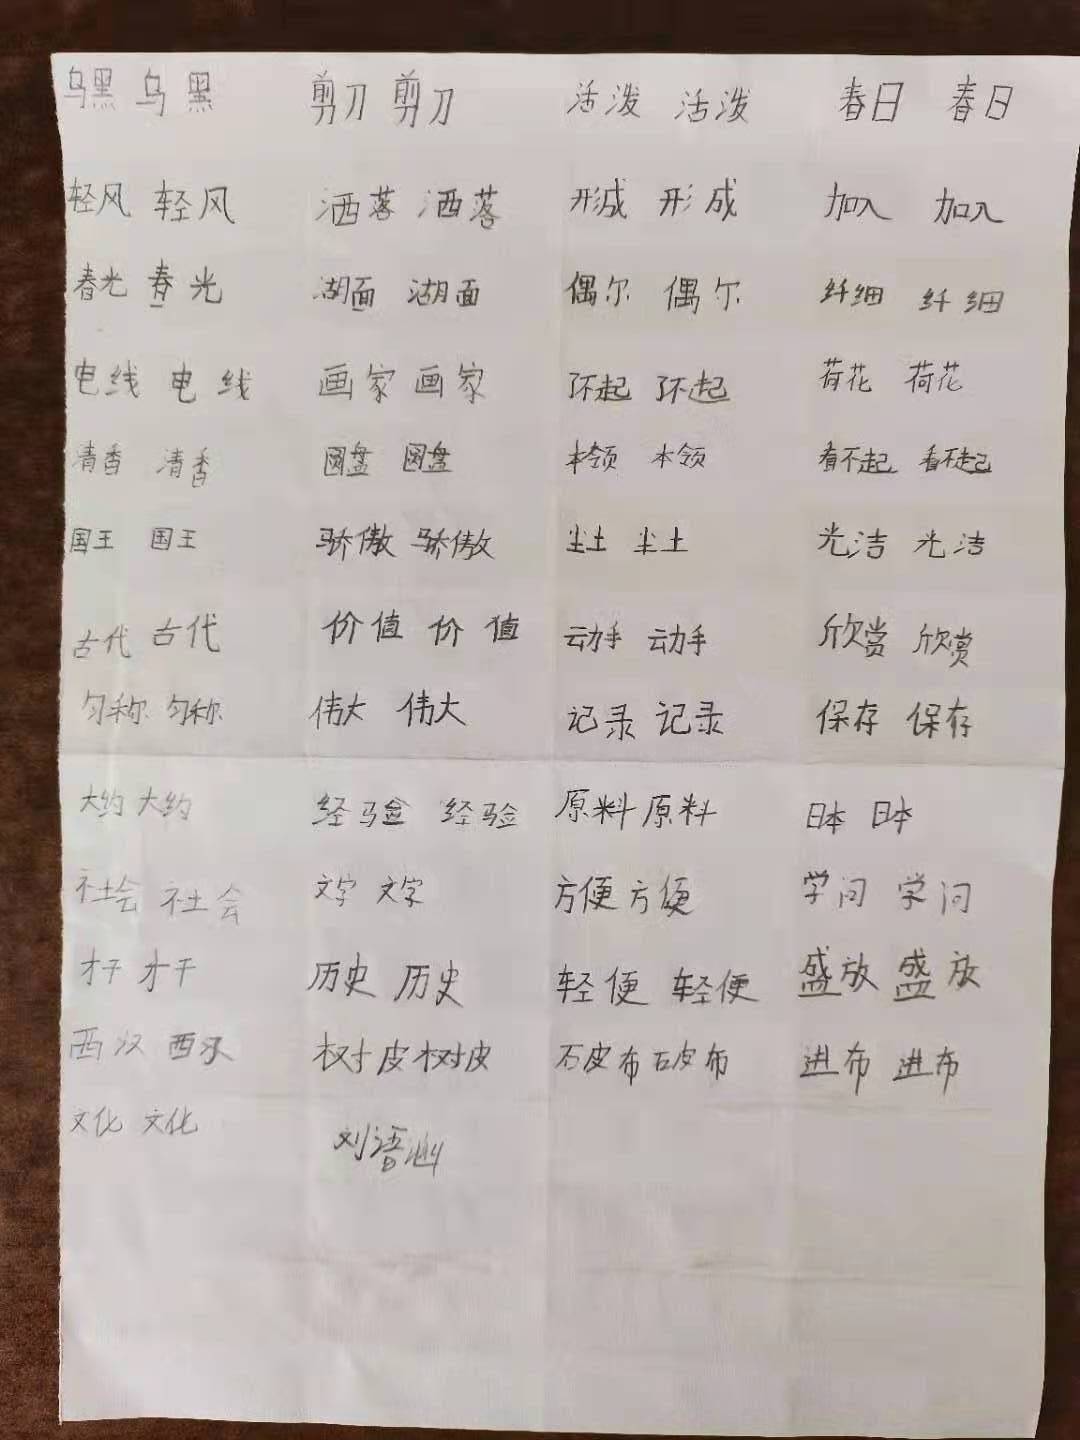 乌黑 乌黑 剪刀 剪刀 活泼 活泼 春日 春日
轻风 轻风 洒落 洒落 形成 形成 加入 加入
春光 春光 湖面 湖面 偶尔 偶尔 纤细 纤细
电线 电线 画家 画家 了不起 了不起 荷花 荷花
清香 清香 圆盘 圆盘 本领 本领 看不起 看不起
国王 国王 骄傲 骄傲 尘土 尘土 光洁 光洁
古代 古代 价值 价值 动手 动手 欣赏 欣赏
匀称 匀称 伟大 伟大 记录 记录 保存 保存
大约 大约 经验 经验 原料 原料 日本 日本
社会 社会 文字 文字 方便 方便 学问 学问
才干 才干 历史 历史 轻便 轻便 盛放 盛放
西汉 西汉 树皮 树皮 石皮布 石皮布 进布 进布
文化 文化 刘语